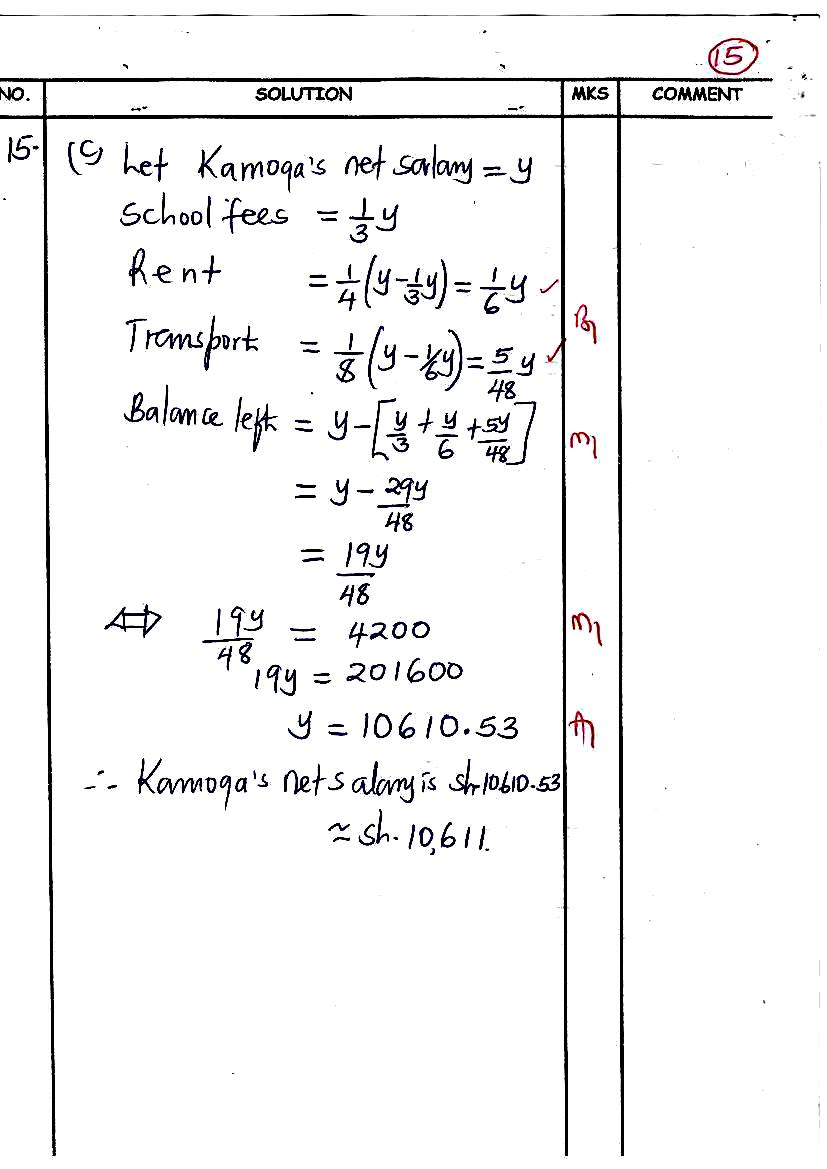 15
NO. SOLUTION MKS COMMENT
15. (c) Let Kamoga's net salary = y
School fees = 1/3 y
Rent = 1/4 (y - 1/3 y) = 1/6 y ✓
B1
Transport = 1/8 (y - 1/6 y) = 5/48 y ✓
Balance left = y - [y/3 + y/6 + 5y/48] M1
= y - 29y/48
= 19y/48
⇔ 19y/48 = 4200 M1
19y = 201600
y = 10610.53 A1
∴ Kamoga's net salary is sh. 10610.53
≈ sh. 10,611.